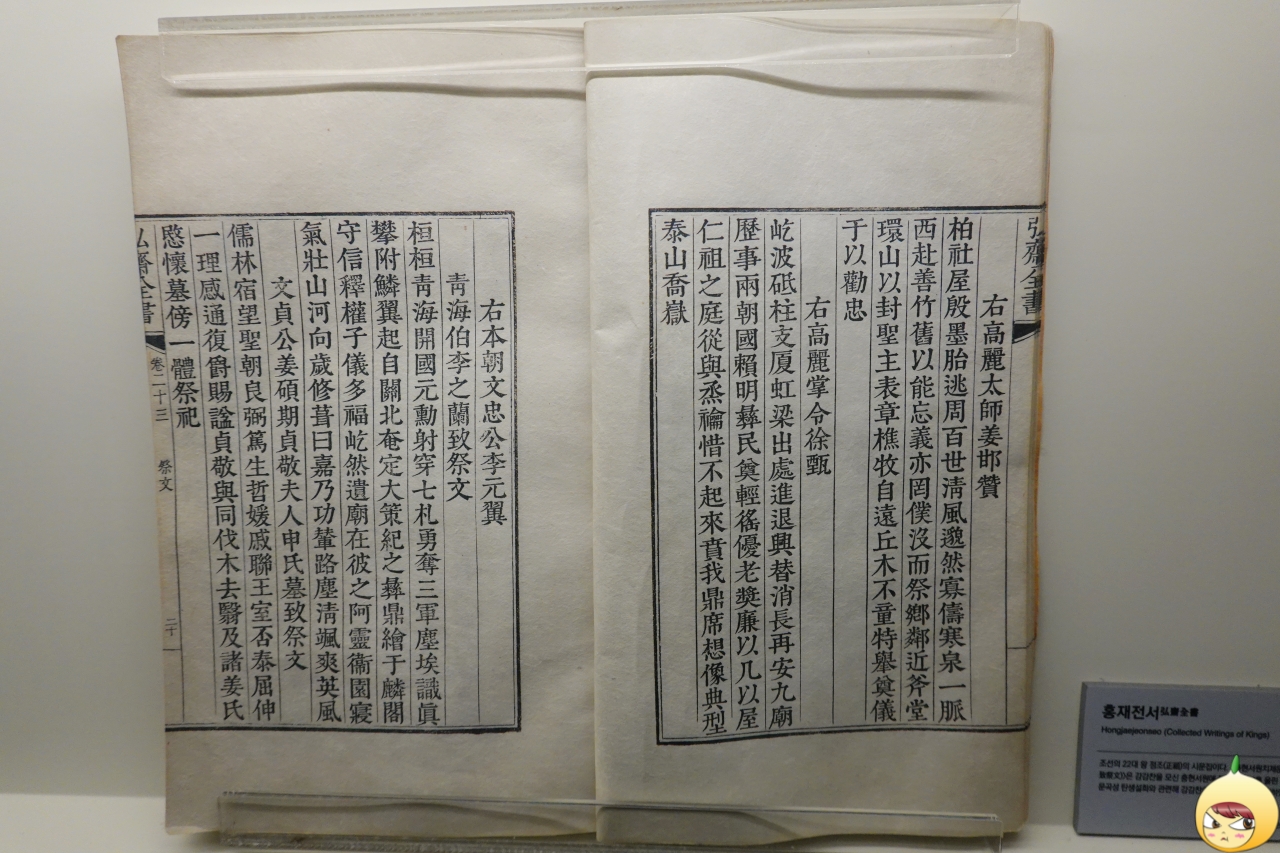 弘齋全書
右高麗太師姜邯贊
柏社屋殷墨胎逃周百世淸風邈然寡儔寒泉一脈
西赴善竹舊以能忘義亦罔僕沒而祭鄕鄰近斧堂
環山以封聖主表章樵牧自遠丘木不童特擧奠儀
于以勸忠
右高麗掌令徐甄
屹波砥柱支厦虹梁出處進退興替消長再安九廟
歷事兩朝國賴明彝民奠輕徭優老奬廉以几以屋
仁祖之庭從與烝禴惜不起來賁我鼎席想像典型
泰山喬嶽
右本朝文忠公李元翼
靑海伯李之蘭致祭文
桓桓靑海開國元勳射穿七札勇奪三軍塵埃識眞
攀附鱗翼起自關北奄定大策紀之彝鼎繪于麟閣
守信釋權子儀多福屹然遺廟在彼之阿靈衞園寢
氣壯山河向歲修葺曰嘉乃功輦路塵淸颯爽英風
文貞公姜碩期貞敬夫人申氏墓致祭文
儒林宿望聖朝良弼篤生哲媛戚聯王室否泰屈伸
一理感通復爵賜諡貞敬與同伐木去翳及諸姜氏
愍懷墓傍一體祭祀
弘齋全書 卷二十三 祭文 二十
홍재전서弘齋全書
Hongjaejeonseo (Collected Writings of Kings)
조선의 22대 왕 정조(正祖)의 시문집이다.
은 강감찬을 모신 충현서원에
문곡성 탄생설화와 관련해 강감찬